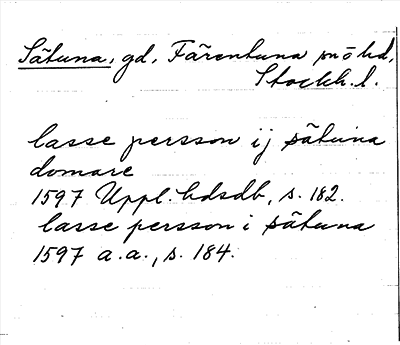 Sätuna, gd, Färentuna sn ö hd,
Stockh. l.
lasse persson ij sätuna
domare
1597 Uppl. hdsdb, s. 182.
lasse persson i sätuna
1597 a.a., s. 184.